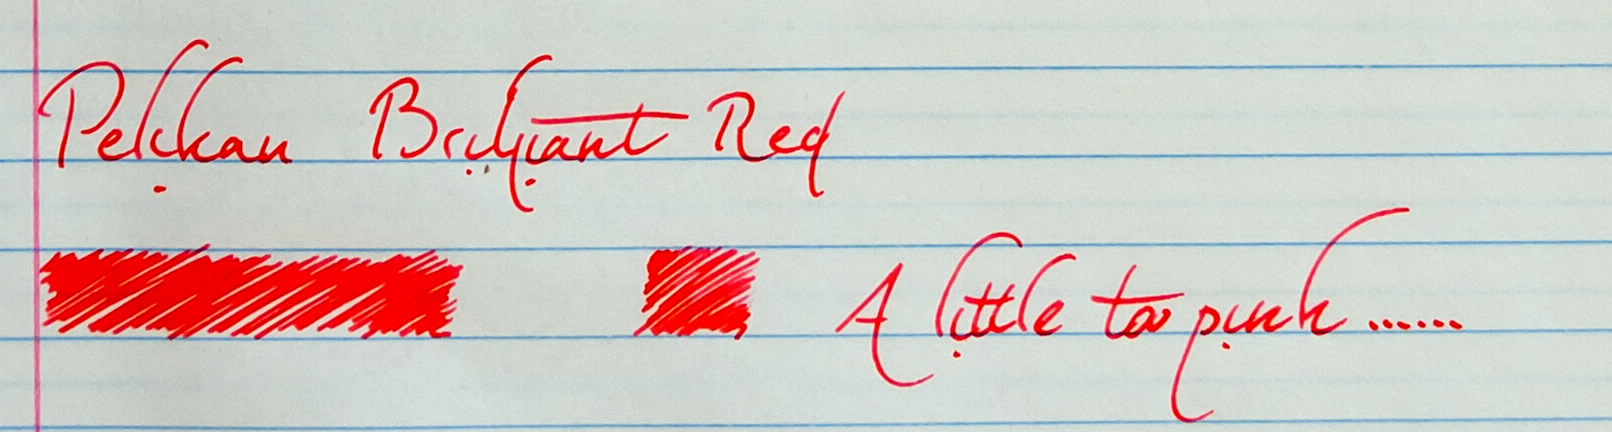 Pelikan Brilliant Red
A little too pink ......